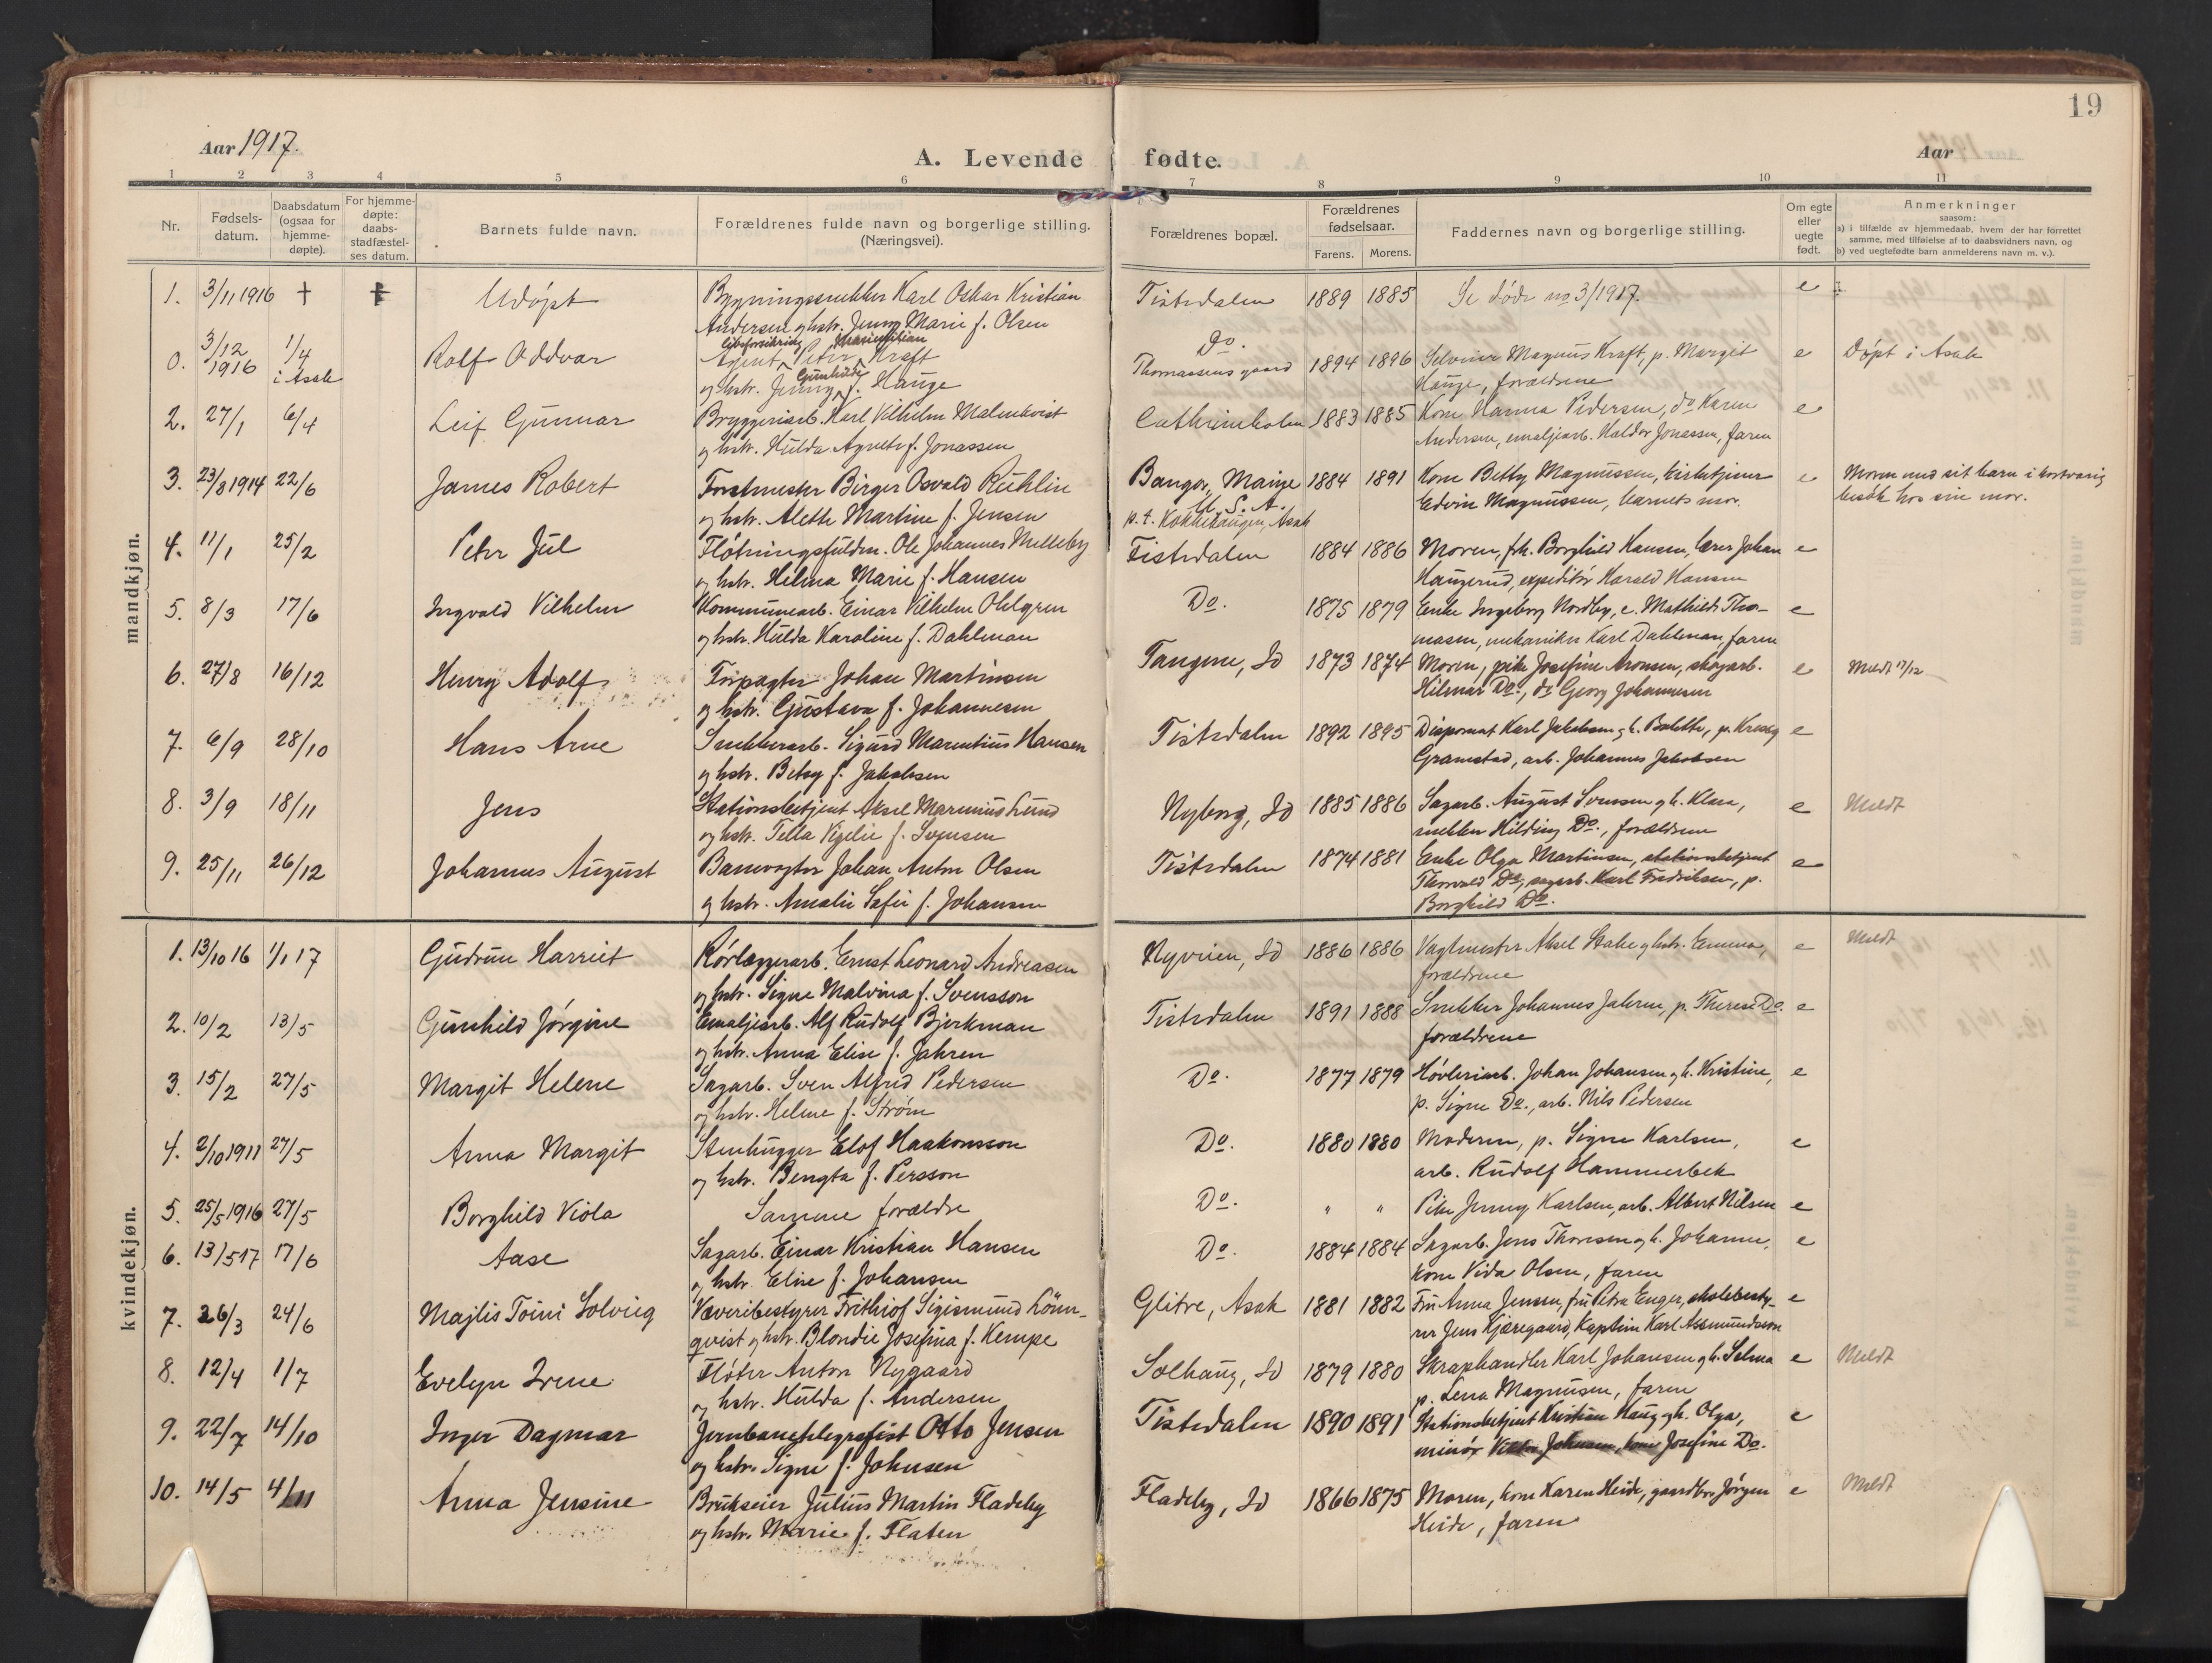 19
Aar 1917.
A. Levende fødte.
Aar
1 2 3 4 5 6 7 8 9 10 11
Nr. Fødsels-datum. Daabsdatum (ogsaa for hjemme-døpte). For hjemme-døpte: daabs-stadfæstel-ses datum. Barnets fulde navn. Forældrenes fulde navn og borgerlige stilling. (Næringsvei). Forældrenes bopæl. Forældrenes fødselsaar. Farens. Morens. Faddernes navn og borgerlige stilling. Om egte eller uegte født. Anmerkninger saasom: a) i tilfælde av hjemmedaab, hvem der har forrettet samme, med tilføielse af to daabsvidners navn, og b) ved uegtefødte barn anmelderens navn m. v.).
mandkjøn.
1. 3/11 1916 † Udøpt Bygningssnekker Karl Oskar Kristian Tistedalen 1889 1885 Se døde no 3/1917. e
Andersen og hstr. Jenny Marie f. Olsen
0. 3/12 1916 1/4 i Asak Rolf Oddvar Livsforsikring Agent Peter Kraft Do. Thomassens gaard 1894 1896 Magnus Kraft, p. Margit e Døpt i Asak
og hstr. Jenny Gunhilde f. Hauge Hauge, forældrene
2. 27/1 6/4 Leif Gunnar Bryggeriarb. Karl Vilhelm Malmkvist Cathrineholm 1883 1885 Kone Hanna Pedersen, do Karen e
og hstr. Hulda Agnete f. Jonassen Andersen, emaljearb. Haldor Jonassen, faren
3. 23/8 1914 22/6 James Robert Forstmester Birger Osvald Rühlin Bangor, Maine 1884 1891 Kone Betty Magnussen, kirketjener e Moren med sit barn i kortvarig
og hstr. Alethe Martine f. Jensen U. S. A. p. t. Kokkehaugen, Asak Edvin Magnussen, barnets mor. besøk hos sin mor.
4. 11/1 25/2 Peter Jul Fløtningsfuldm. Ole Johannes Melleby Tistedalen 1884 1886 Moren, frk. Borghild Hansen, lærer Johan e
og hstr. Helma Marie f. Hansen Haugerud, expeditør Harald Hansen
5. 8/3 17/6 Ingvald Vilhelm Kommunearb. Einar Vilhelm Ohlgren Do. 1875 1879 Enke Ingeborg Nordby, e. Mathilde Tho- e
og hstr. Hulda Karoline f. Dahlman massen, mekaniker Karl Dahlman, faren
6. 27/8 16/12 Henry Adolf Forpagter Johan Martinsen Tangene, Id 1873 1874 Moren, pike Josefine Aronsen, skogarb. e Meldt 17/12
og hstr. Gustava f. Johannesen Hilmar Do., do Georg Johannesen
7. 6/9 28/10 Hans Arne Snekkerarb. Sigurd Marentius Hansen Tistedalen 1892 1895 Disponent Karl Jakobsen og h. Bolette, p. e
og hstr. Betsy f. Jakobsen Granestad, arb. Johannes Jakobsen
8. 3/9 18/11 Jens Stationsbetjent Aksel Marinius Lund Nyborg, Id 1885 1886 Sagarb. August Svensen og h. Klara, e Meldt
og hstr. Tella Vigelie f. Svensen snekker Hilding Do., forældrene
9. 25/11 26/12 Johannes August Banevogter Johan Anton Olsen Tistedalen 1874 1881 Enke Olga Martinsen, stationsbetjent e
og hstr. Amalie Sofie f. Johansen Thorvald Do., sagarb. Karl Fredriksen, p.
Borghild Do.
kvindekjøn.
1. 13/10 16 1/1 17 Gudrun Harriet Rørlæggerarb. Ernst Leonard Andreasen Nyveien, Id 1886 1886 Vagtmester Aksel Stake og hstr. Emma, e Meldt
og hstr. Signe Malvina f. Svensson forældrene
2. 10/2 13/5 Gunhild Jørgine Emaljearb. Alf Rudolf Bjerkman Tistedalen 1891 1888 Snekker Johannes Jahren, p. Therese Do. e
og hstr. Anna Elise f. Jahren forældrene
3. 15/2 27/5 Margit Helene Sagarb. Sven Alfred Pedersen Do. 1877 1879 Høvleriarb. Johan Johansen og h. Kristine, e
og hstr. Helene f. Strøm p. Signe Do., arb. Nils Pedersen
4. 2/10 1911 27/5 Anna Margit Stenhugger Elof Haakonsson Do. 1880 1880 Moderen, p. Signe Karlsen, e
og hstr. Bengta f. Persson arb. Rudolf Hammerbek
5. 25/5 1916 27/5 Borghild Viola Samme forældre Do. " " Pike Jenny Karlsen, arb. Albert Nilsen e
6. 13/5 17 17/6 Aase Sagarb. Einar Kristian Hansen Do. 1884 1884 Sagarb. Jens Thoresen og h. Johanne, e
og hstr. Elise f. Johansen kone Vida Olsen, faren
7. 26/3 24/6 Majlis Toini Solveig Væveribestyrer Frithiof Sigismund Lönn- Glitre, Asak 1881 1882 Fru Anna Jensen, fru Petra Enger, skolebesty- e
qvist og hstr. Blondie Josefina f. Kempe rer Jens Kjæregaard, Kaptein Karl Assmundsson
8. 12/4 1/7 Evelyn Irene Fløter Anton Nygaard Solhaug, Id 1879 1880 Skraphandler Karl Johansen og h. Selma e Meldt
og hstr. Hulda f. Andersen p. Lena Magnusen, faren
9. 22/7 14/10 Inger Dagmar Jernbanetelegrafist Otto Jensen Tistedalen 1890 1891 Stationsbetjent Kristian Haug og h. Olga, e
og hstr. Signe f. Johnsen minør Viktor Johnsen, kone Josefine Do.
10. 14/5 4/11 Anna Jensine Brukseier Julius Martin Fladeby Fladeby, Id 1866 1875 Moren, kone Karen Heide, gaardbr. Jørgen e Meldt
og hstr. Marie f. Flaten Heide, faren